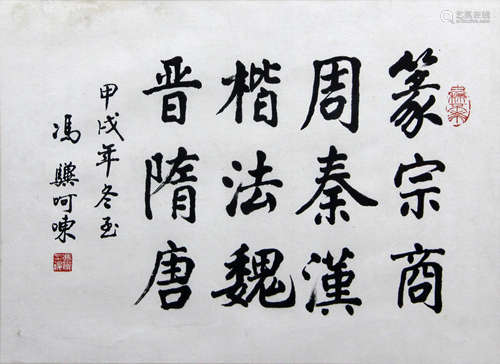 篆宗商
周秦漢
楷法魏
晋隋唐
甲戌年冬至
冯骥呵冻